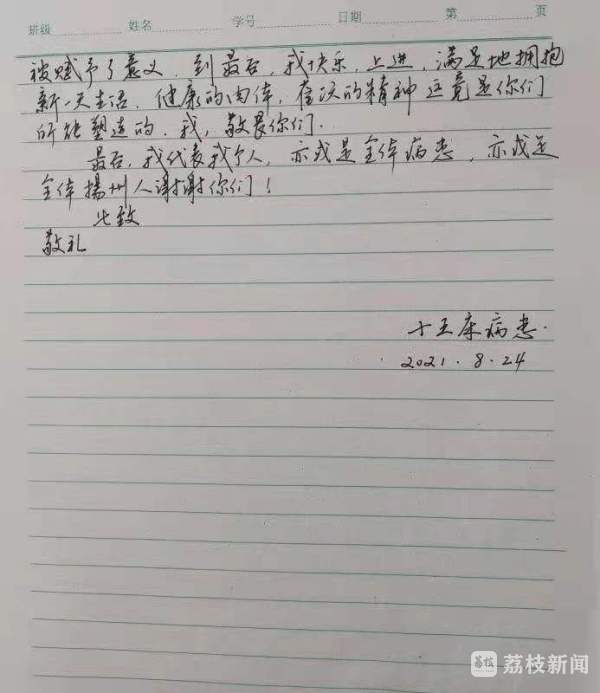 班级 姓名 学号 日期 第 页
被赋予了意义，到最后，我快乐，上进，满足地拥抱
新一天生活，健康的肉体，富沃的精神这竟是你们
所能塑造的，我，敬畏你们．
最后，我代表我个人，亦或是全体病患，亦或是
全体扬州人谢谢你们！
此致
敬礼
十五床病患．
2021．8．24
荔枝新闻